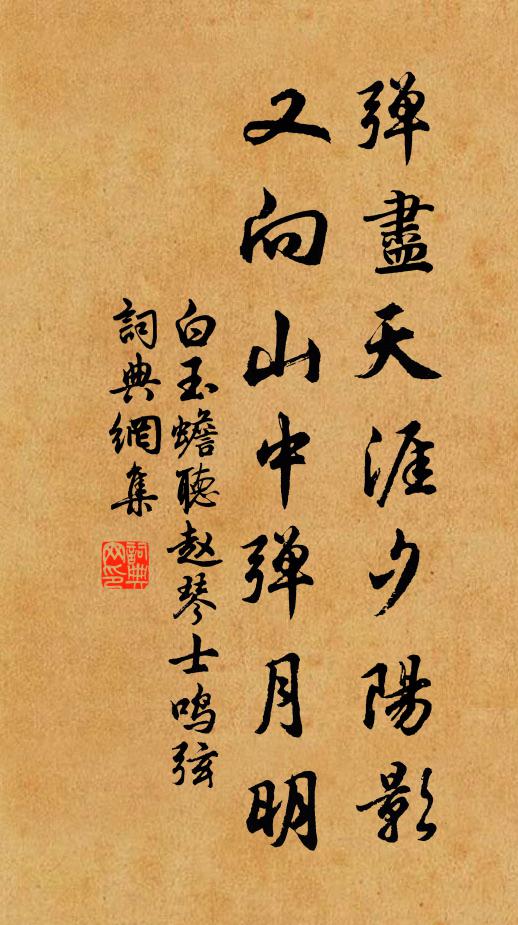 弹盡天涯夕陽影
又向山中弹月明
白玉蟾聽赵琴士鸣弦
詞典網集
詞典網印